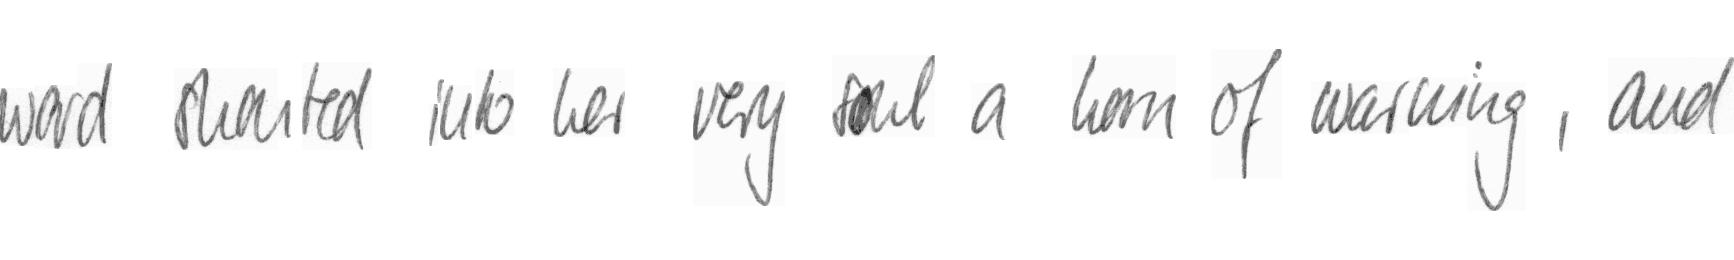 word shouted into her very soul a horn of warning, and